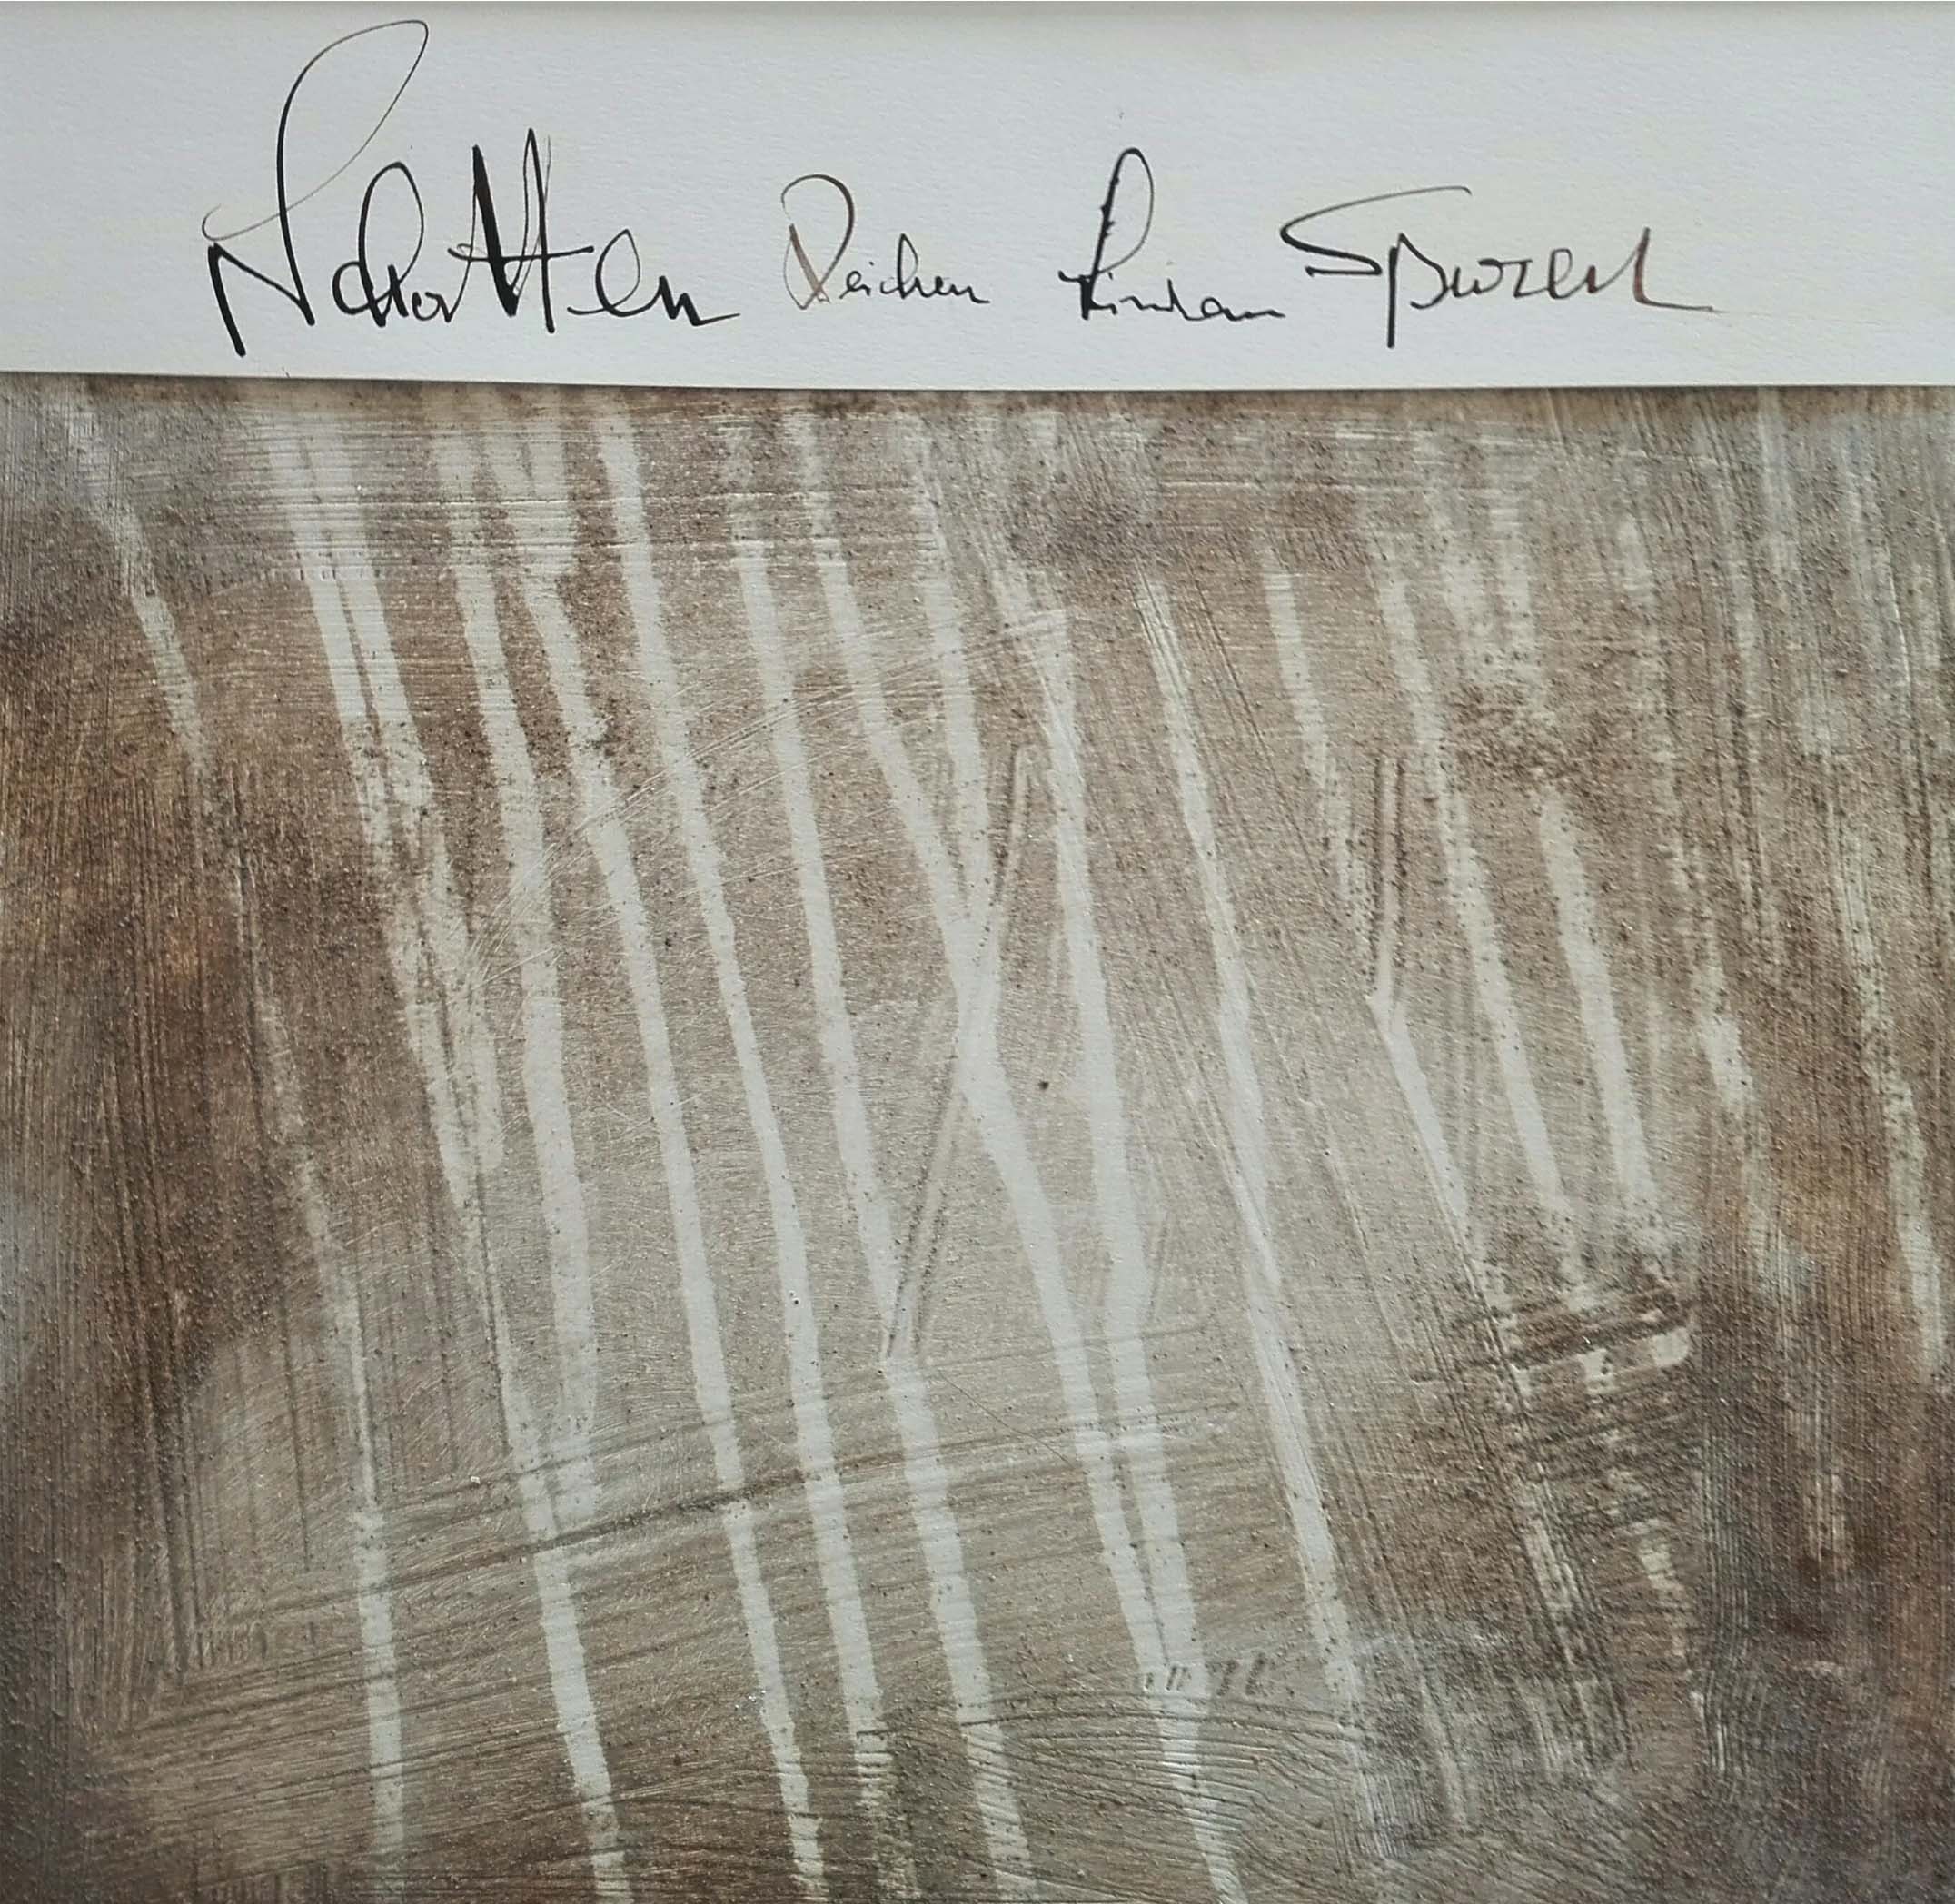 Schatten Zeichen Linien Spuren